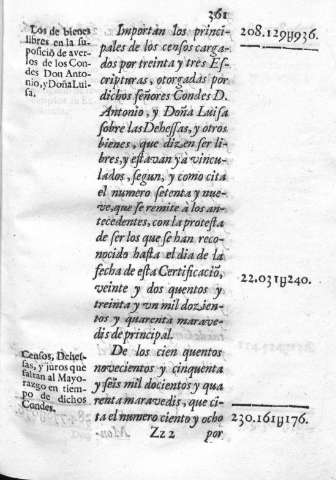 361
Los de bienes
libres en la su-
posiciõ de aver-
los de los Con-
des Don Anto-
nio, y Doña Lui-
sa.
Importan los princi-
pales de los censos carga-
dos por treinta y tres Es-
cripturas, otorgadas por
dichos señores Condes D.
Antonio, y Doña Luisa
sobre las Dehessas, y otros
bienes, que dizen ser li-
bres, y estavan yà vincu-
lados, segun, y como cita
el numero setenta y nue-
ve, que se remite à los an-
tecedentes, con la protesta
de ser los que se han reco-
nocido hasta el dia de la
fecha de esta Certificaciõ,
veinte y dos quentos y
treinta y vn mil dozien-
tos y quarenta marave-
dis de principal.
208.129ɥ936.
22.031ɥ240.
Censos, Dehes-
sas, y juros que
faltan al Mayo-
razgo en tiem-
po de dichos
Condes.
De los cien quentos
novecientos y cinquenta
y seis mil docientos y qua
renta maravedis, que ci-
ta el numero ciento y ocho
230.161ɥ176.
Zz 2
por